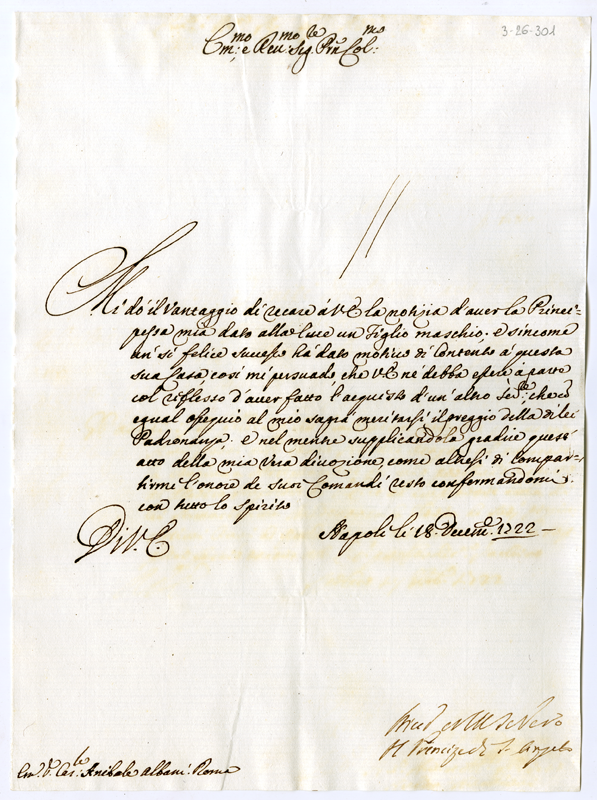 3-26-301
Em:mo e Reu:mo Sig:re Prñ Col:mo
Mi dó il Vantaggio di recare á V.E. la notizia d'auer la Princi=
pessa mia dato alla luce un Figlio maschio; e sincome
un sí felice successo há dato motiuo di Contento á questa
sua Casa cosí mi persuado, che V.E. ne debba essere à parte
col riflesso d'auer fatto l'acquisto d'un'altro Ser:re, che cõ
egual ossequio al mio saprà meritarsi il preggio della di lei
Padronanza. E nel mentre supplicandola gradire quest'
atto della mia vera diuozione, come altresí di Compar=
tirme l'onore de suoi Comandi resto confermandomi
con tutto lo spirito
Di V.E. Napoli li 18. Decem:e 1722 —
Il Principe di S. Angelo
Em:o Sr. Car:le Anibale Albani. Roma